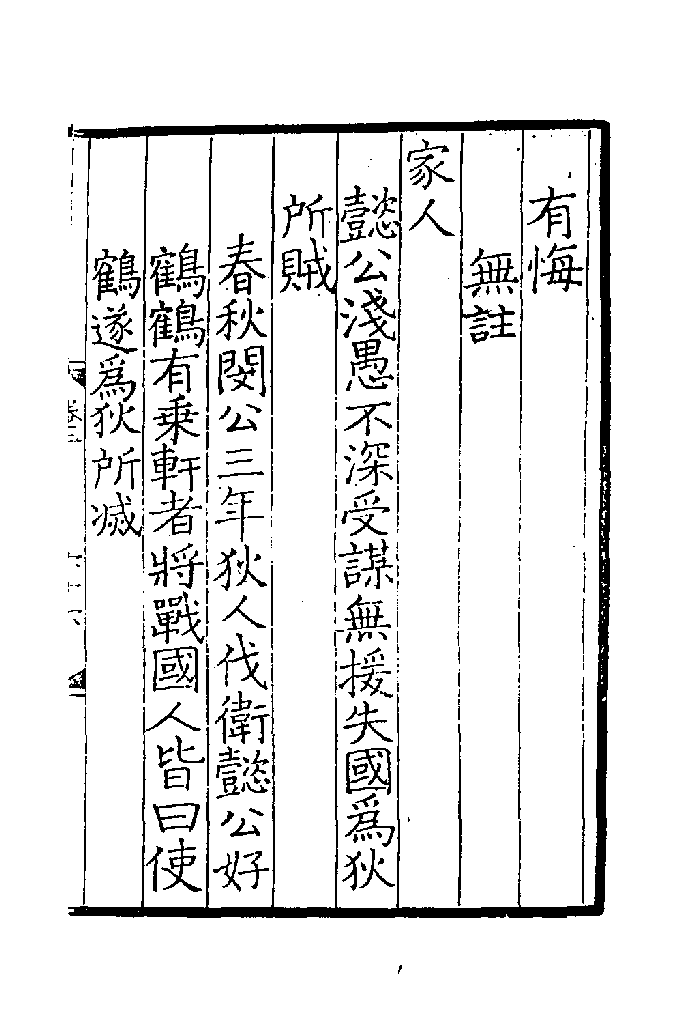 有悔
無註
家人
懿公淺愚不深受謀無援失國爲狄
所賊
春秋閔公三年狄人伐衛懿公好
鶴鶴有乗軒者將戰國人皆曰使
鶴遂爲狄所滅